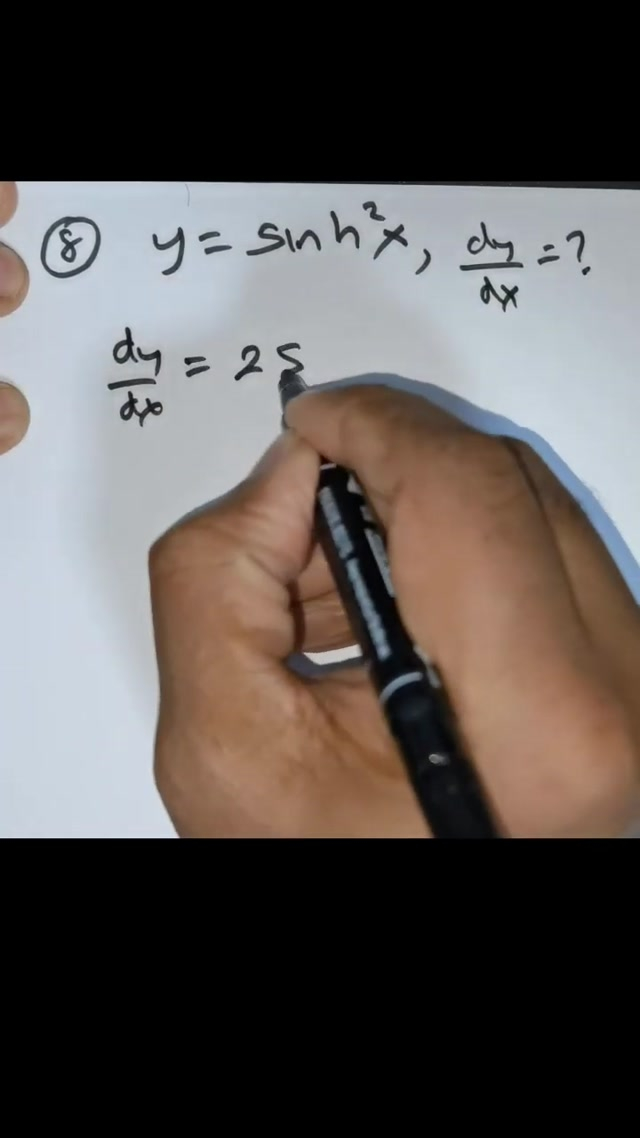 ⑧ y = sinh²x, dy/dx = ?
dy/dx = 2 s